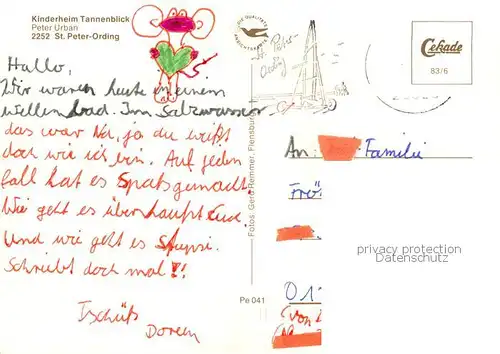 Kinderheim Tannenblick
Peter Urban
2252 St. Peter-Ording
Hallo,
Wir waren heute in einem
wellenbad. Im Salzwasser
das war Na, ja du weißt
doch wie ich bin. Auf jeden
fall hat es Spaß gemacht.
Wie geht es überhaupt Euch.
Und wie geht es Stupsi.
Schreibt doch mal!!
Tschüß
Doreen
Fotos: Gerd Remmer, Flensburg
Pe 041
St. Peter-
Ording
Cekade
83/6
An: Familie
Frö
O1
(von
privacy protection
Datenschutz